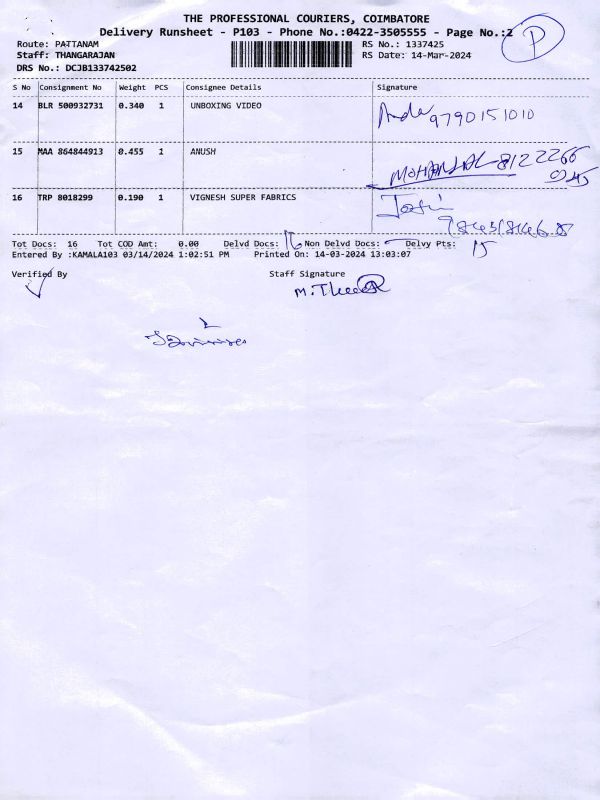 THE PROFESSIONAL COURIERS, COIMBATORE
Delivery Runsheet - P103 - Phone No.:0422-3505555 - Page No.:2 P
Route: PATTANAM RS No.: 1337425
Staff: THANGARAJAN RS Date: 14-Mar-2024
DRS No.: DCJB133742502
S No Consignment No Weight PCS Consignee Details Signature
14 BLR 500932731 0.340 1 UNBOXING VIDEO
9790151010
15 MAA 864844913 0.455 1 ANUSH
MOHANLAL 8122266
16 TRP 8018299 0.190 1 VIGNESH SUPER FABRICS
Tot Docs: 16 Tot COD Amt: 0.00 Delvd Docs: 16 Non Delvd Docs: Delvy Pts: 15
Entered By :KAMALA103 03/14/2024 1:02:51 PM Printed On: 14-03-2024 13:03:07
Verified By Staff Signature